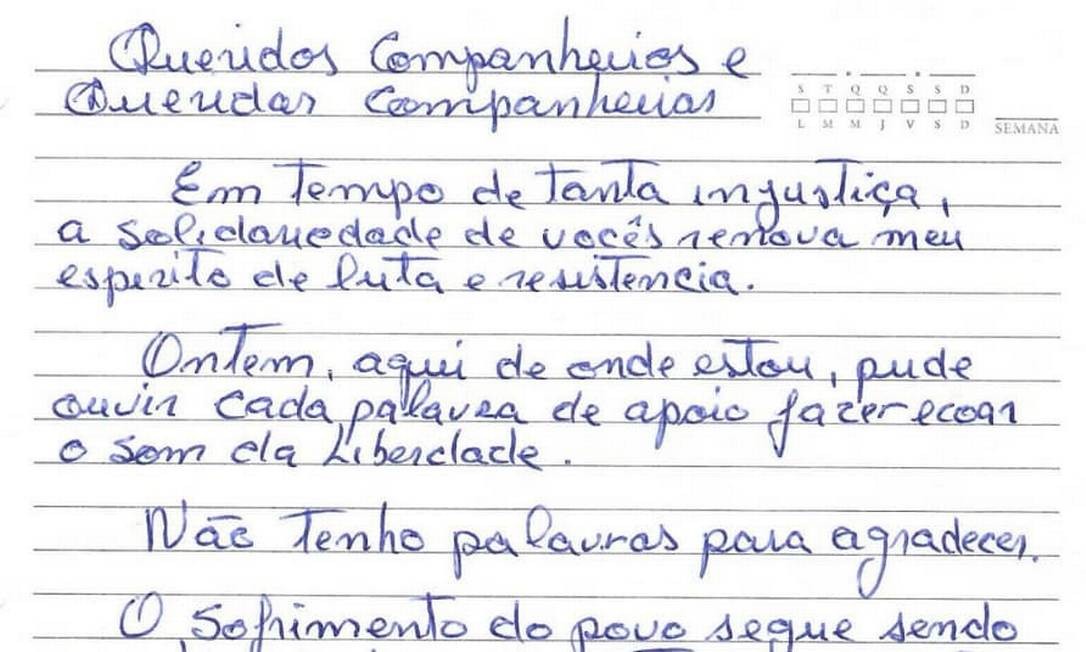 Queridos Companheiros e
Queridas Companheiras
S T Q Q S S D
L M M J V S D
SEMANA
Em tempo de tanta injustiça,
a solidariedade de vocês renova meu
espirito de luta e resistencia.
Ontem, aqui de onde estou, pude
ouvir cada palavra de apoio fazer ecoar
o som da Liberdade.
Não tenho palavras para agradecer.
O sofrimento do povo segue sendo